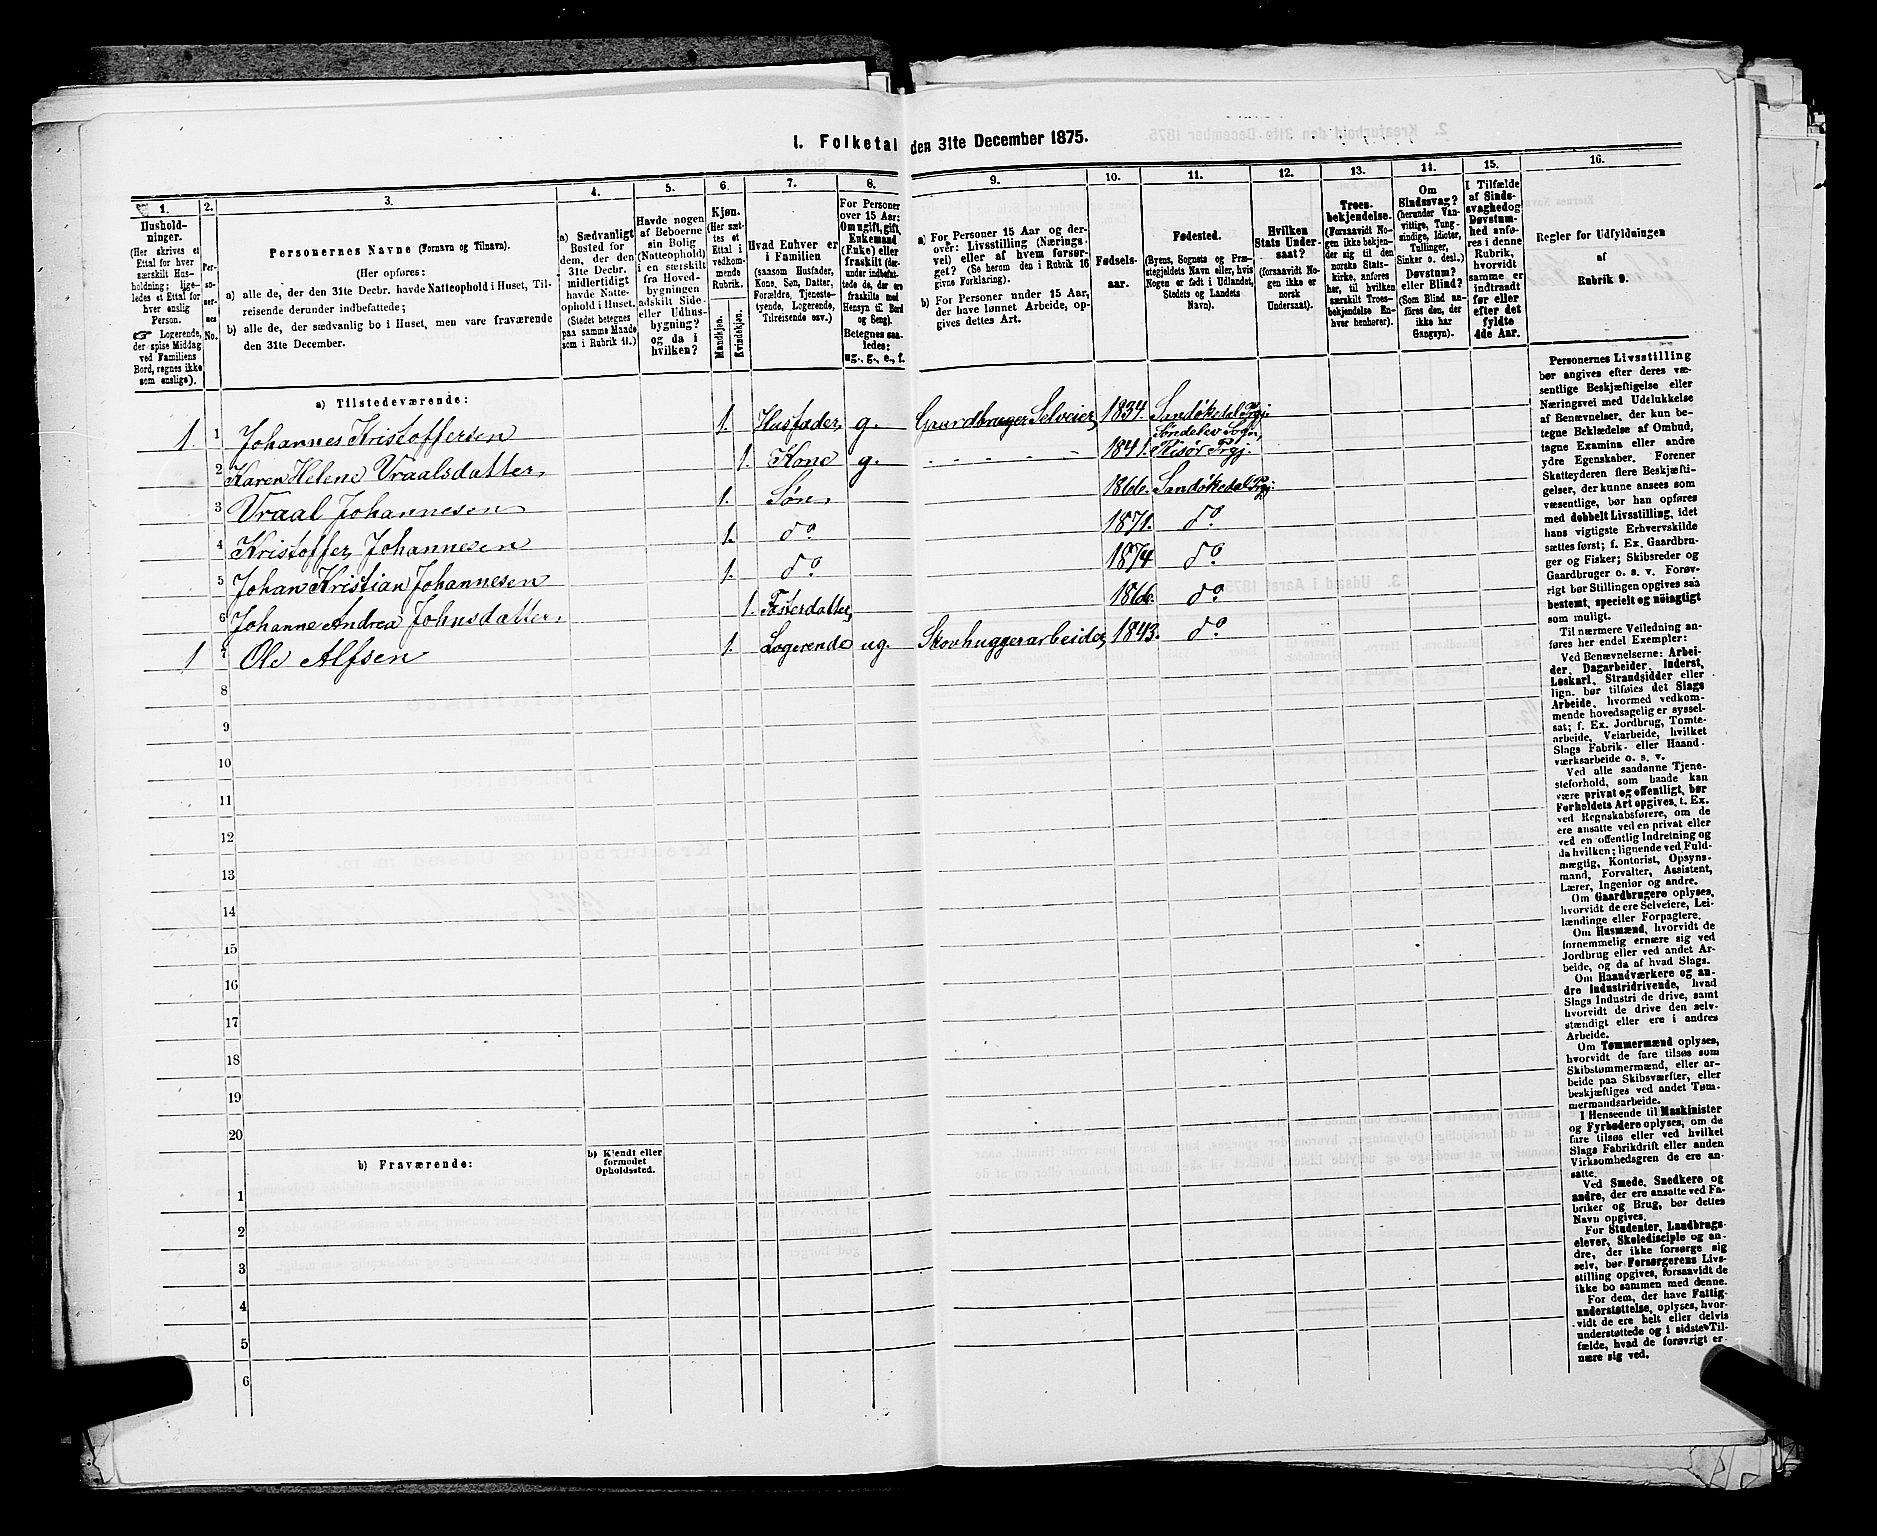 I. Folketal den 31te December 1875.
1.
2.
3.
4.
5.
6.
7.
8.
9.
10.
11.
12.
13.
14.
15.
16.
Husholdninger.
(Her skrives et
Ettal for hver
særskilt Husholdning;
ligeledes et Ettal for
hver enslig
Person.
☞ Logerende,
der spise Middag
ved Familiens
Bord, regnes ikke
som enslige).
Personernes No.
Personernes Navne (Fornavn og Tilnavn).
(Her opføres:
a) alle de, der den 31te Decbr. havde Natteophold i Huset, Tilreisende derunder indbefattede;
b) alle de, der sædvanlig bo i Huset, men vare fraværende
den 31te December.
a) Sædvanligt
Bosted for
dem, der den
31te Decbr.
midlertidigt
havde Natteophold i Huset.
(Stedet betegnes
paa samme Maade
som i Rubrik 11.)
Havde nogen
af Beboerne
sin Bolig
(Natteophold)
i en særskilt
fra Hovedbygningen
adskilt Side-
eller Udhusbygning?
og da i
hvilken?
Kjøn.
(Her sættes et
Ettal i
vedkommende
Rubrik.
Mandkjøn.
Kvindekjøn.
Hvad Enhver er
i Familien
(saasom Husfader,
Kone, Søn, Datter,
Forældre, Tjenestetyende, Logerende,
Tilreisende osv.)
For Personer
over 15 Aar:
Om ugift, gift,
Enkemand
(Enke) eller
fraskilt (derunder indbefattede de, der ere
fraskilte med
Hensyn til Bord
og Seng).
Betegnes saaledes:
ug., g., e., f.
a) For Personer 15 Aar og derover: Livsstilling (Næringsvei) eller af hvem forsørget? (Se herom den i Rubrik 16
givne Forklaring).
b) For Personer under 15 Aar,
der have lønnet Arbeide, opgives dettes Art.
Fødselsaar.
Fødested.
(Byens, Sognets og Præstegjeldets Navn eller, hvis
Nogen er født i Udlandet,
Stedets og Landets
Navn).
Hvilken
Stats Undersaat?
(forsaavidt Nogen ikke er
norsk
Undersaat).
Troesbekjendelse.
(Forsaavidt Nogen ikke bekjender sig til den
norske Statskirke, anføres
her, til hvilken
særskilt Troesbekjendelse Enhver henhører).
Om
Sindssvag?
(herunder Vanvittige, Tungsindige, Idioter,
Tullinger,
Sinker o. desl.)
Døvstum?
eller Blind?
(Som Blind anføres den, der
ikke har
Gangsyn).
I Tilfælde
af Sindssvaghed og
Døvstumhed anføres i denne
Rubrik,
hvorvidt
samme er
indtraadt
før eller
efter det
fyldte
4de Aar.
Regler for Udfyldningen
af
Rubrik 9.
a) Tilstedeværende:
1. 1 Johannes Kristoffersen 1. Husfader, g. Gaardbruger Selveier 1834. Sandøkedal Prgj.
2 Karen Helene Vraalsdatter, 1. Kone g. – – – – – 1841. Søndelev Sogn, Risør Prgj.
3 Vraal Johannesen 1. Søn, 1866. Sandøkedal Prgj.
4 Kristoffer Johannesen 1. do 1871. do
5 Johan Kristian Johannesen 1. do 1874 do
6 Johanne Andrea Johnsdatter, 1. Fosterdatter, 1866. do
1 7 Ole Alfsen 1. Logerende ug. Skovhuggerarbeider, 1843. do
8
9
10
11
12
13
14
15
16
17
18
19
20
b) Fraværende:
b) Kjendt eller
formodet
Opholdssted.
1
2
3
4
5
6
Personernes Livsstilling
bør angives efter deres væsentlige Beskjæftigelse eller
Næringsvei med Udelukkelse
af Benævnelser, der kun betegne Beklædelse af Ombud,
tagne Examina eller andre
ydre Egenskaber. Forener
Skatteyderen flere Beskjæftigelser, der kunne ansees som
væsentlige, bør han opføres
med dobbelt Livsstilling, idet
hans vigtigste Erhvervskilde
sættes først; f. Ex. Gaardbruger og Fisker; Skibsreder og
Gaardbruger o. s. v. Forøvrigt bør Stillingen opgives saa
bestemt, specielt og nøiagtigt
som muligt.
Til nærmere Veiledning anføres her endel Exempler:
Ved Benævnelserne: Arbeider, Dagarbeider, Inderst,
Løskarl, Strandsidder eller
lign. bør tilføies det Slags
Arbeide, hvormed vedkommende hovedsagelig er sysselsat; f. Ex. Jordbrug, Tomtearbeide, Veiarbeide, hvilket
Slags Fabrik- eller Haandværksarbeide o. s. v.
Ved alle saadanne Tjenesteforhold, som baade kan
være privat og offentligt, bør
Forholdets Art opgives, t. Ex.
ved Regnskabsførere, om de
ere ansatte ved en privat eller
en offentlig Indretning og
da hvilken; lignende ved Fuldmægtig, Kontorist, Opsynsmand, Forvalter, Assistent,
Lærer, Ingeniør og andre.
Om Gaardbrugere oplyses,
hvorvidt de ere Selveiere, Leilændinge eller Forpagtere.
Om Husmænd, hvorvidt de
fornemmelig ernære sig ved
Jordbrug eller ved andet Arbeide, og da af hvad Slags.
Om Haandværkere og andre Industridrivende, hvad
Slags Industri de drive, samt
hvorvidt de drive den selvstændigt eller ere i andres
Arbeide.
Om Tømmermænd oplyses,
hvorvidt de fare tilsøs som
Skibstømmermænd, eller arbeide paa Skibsværfter, eller
beskjæftiges ved andet Tømmermandsarbeide.
I Henseende til Maskinister
og Fyrbødere oplyses, om de
fare tilsøs eller ved hvilket
Slags Fabrikdrift eller anden
Virksomhedsgren de ere ansatte.
Ved Smede, Snedkere og
andre, der ere ansatte ved Fabriker og Brug, bør dettes
Navn opgives.
For Studenter, Landbrugselever, Skoledisciple og andre, der ikke forsørge sig
selv, bør Forsørgerens Livsstilling opgives, forsaavidt de
ikke bo sammen med denne.
For dem, der have Fattigunderstøttelse, oplyses, hvorvidt de ere helt eller delvis
understøttede og i sidste Tilfælde, hvad de forøvrigt ernære sig ved.